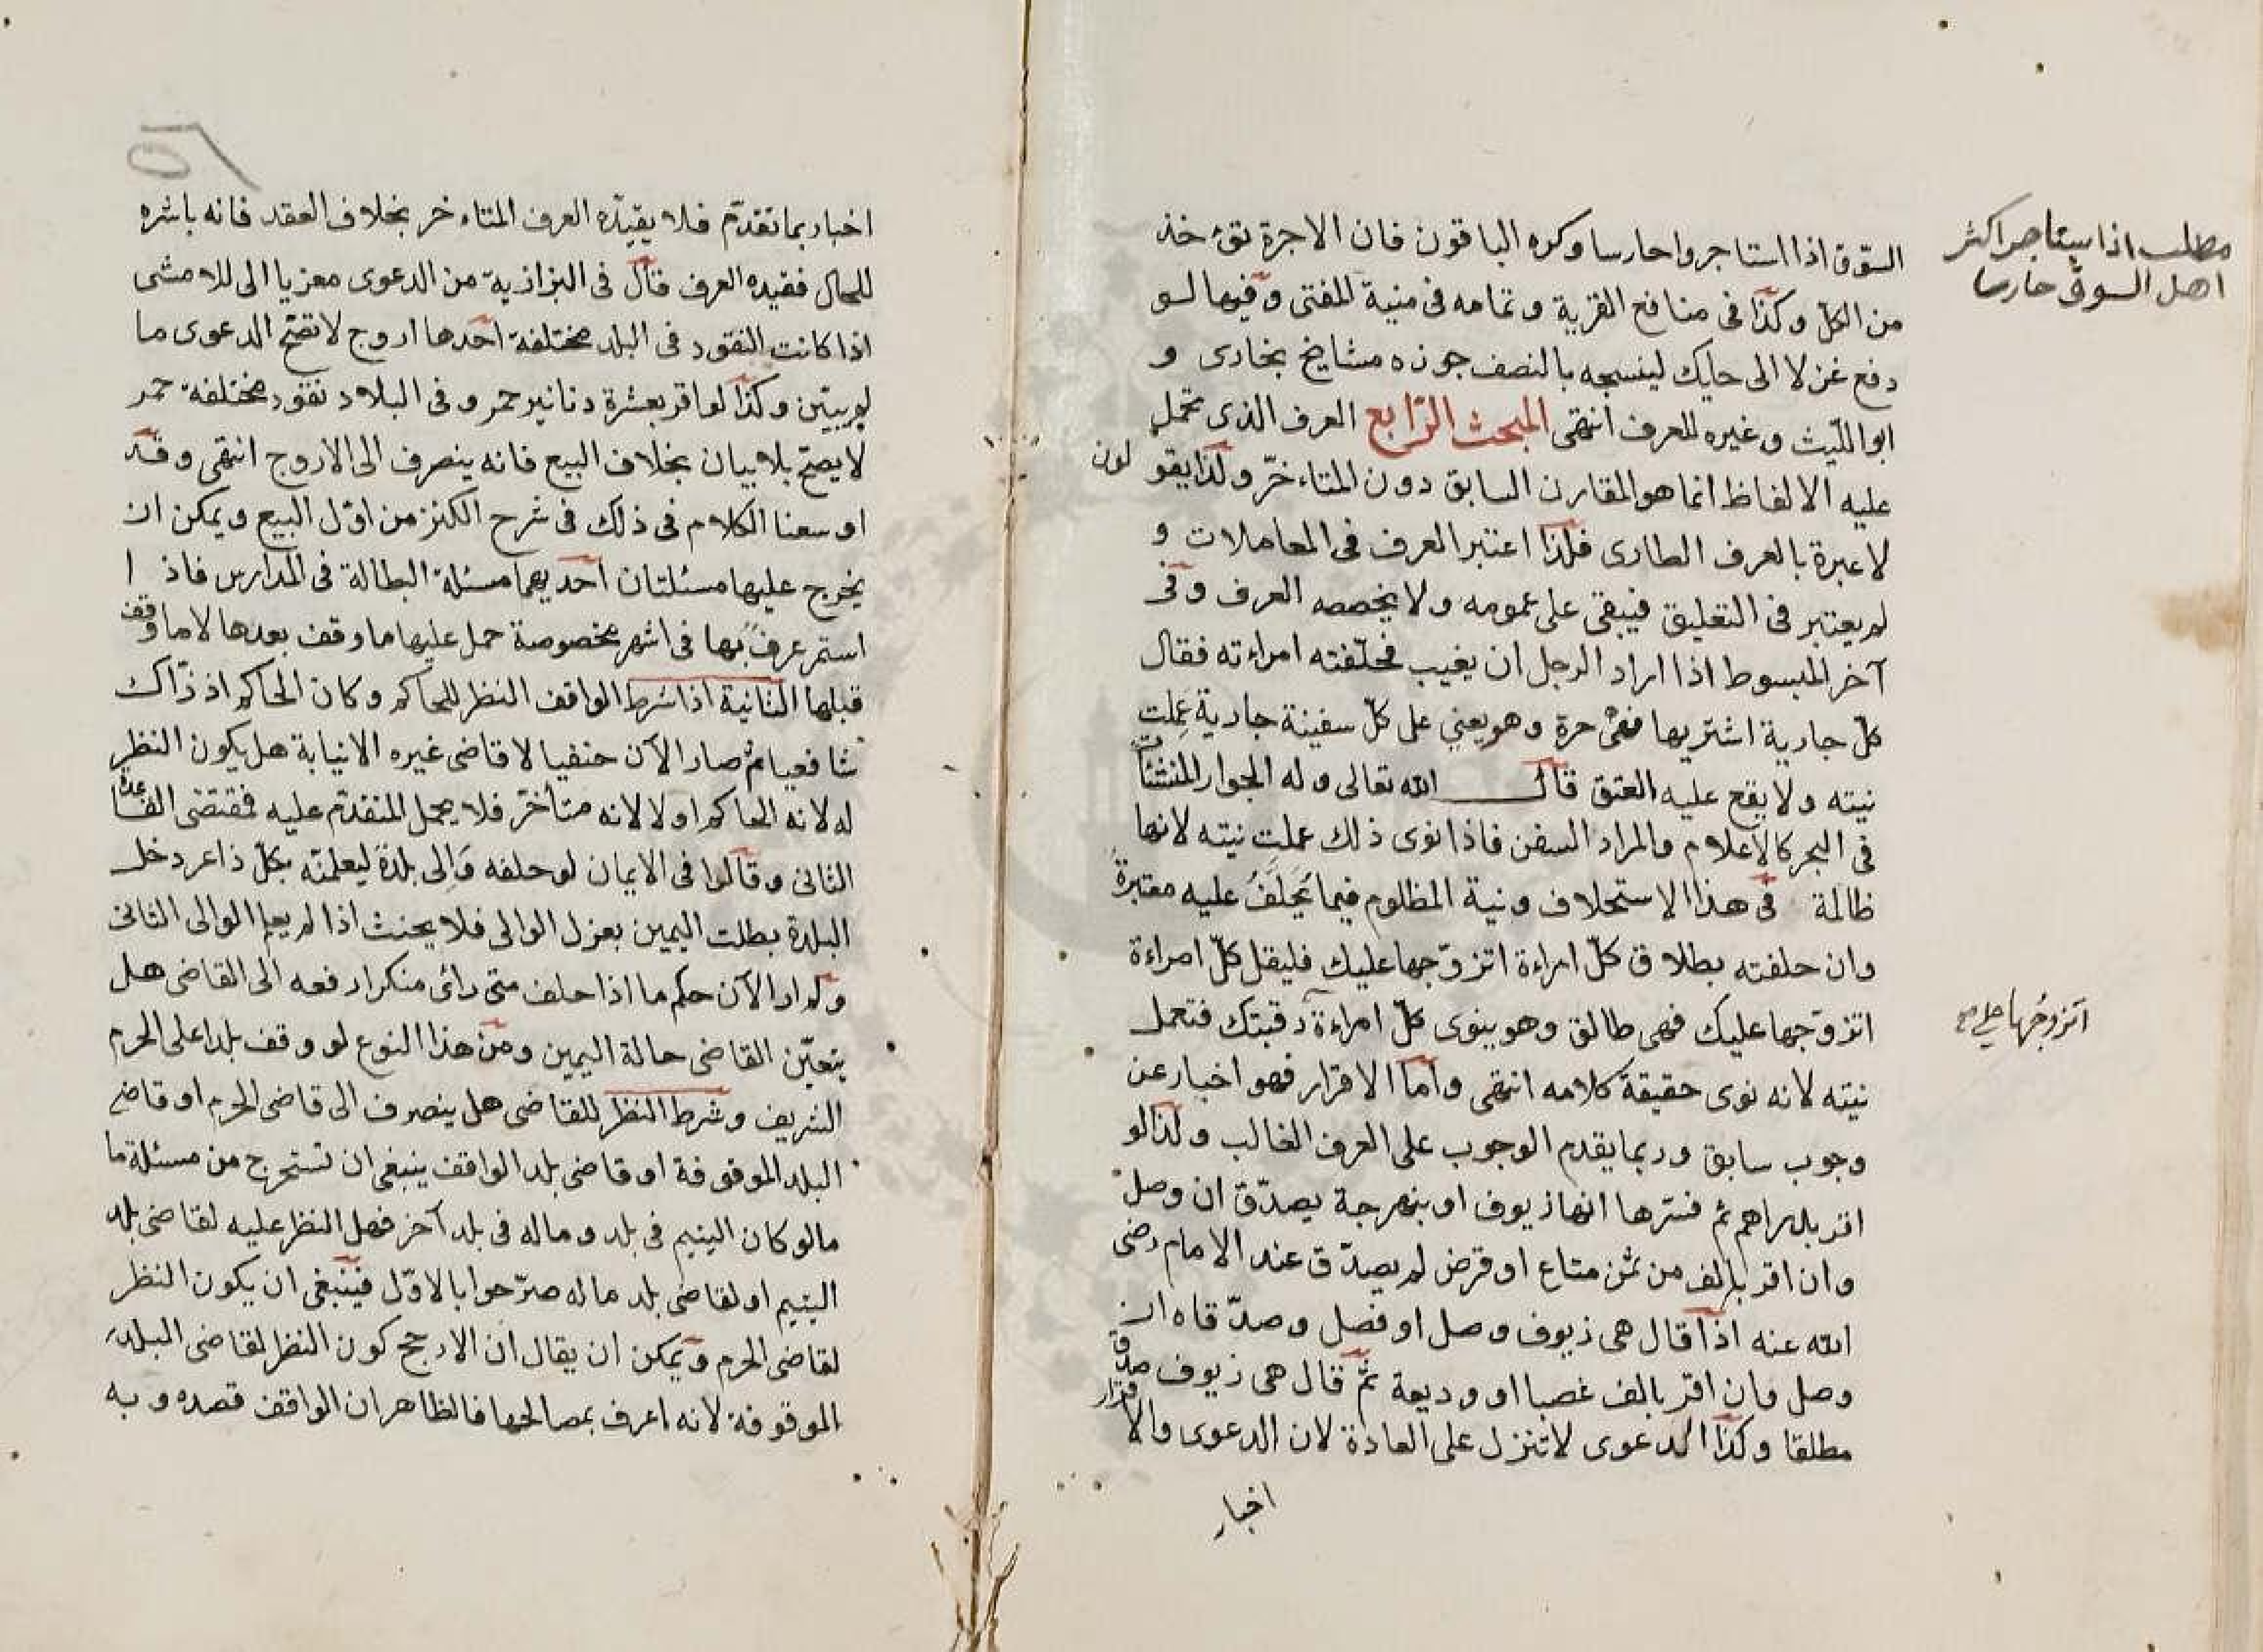 السّوق اذا استاجروا حارسا وكره الباقون فان الاجرة تؤخذ
من الكلّ وكذا فى منافع القرية وتمامه فى منية المفتى وفيها لو
دفع غزلا الى حايك لينسجه بالنصف جوزه مشايخ بخارى و
ابو اللّيث وغيره للعرف انتهى المبحث الرّابع العرف الذى تحمل
عليه الالفاظ انما هو المقارن السابق دون المتاءخّر ولذا يقولون
لا عبرة بالعرف الطارى فلذا اعتبر العرف فى المعاملات و
لم يعتبر فى التعليق فيبقى على عمومه ولا يخصصه العرف وفى
آخر المبسوط اذا اراد الرجل ان يغيب فحلّفته امراءته فقال
كلّ جارية اشتريها فهى حرة وهو يعني على كلّ سفينة جارية عَمِلت
نيته ولا يقع عليه العتق قال الله تعالى وله الجوار المنشئات
فى البحر كالاعلام والمراد السفن فاذا نوى ذلك عملت نيته لانها
ظالمة فى هذا الاستحلاف ونية المظلوم فيما يُحَلَّفُ عليه معتبرةُ
وان حلفته بطلاق كلّ امراءة اتزوّجها عليك فليقل كلّ امراءة
اتزوّجها عليك فهى طالق وهو ينوى كلّ امراءة رقبتك فتعمل
نيته لانه نوى حقيقة كلامه انتهى واما الاقرار فهو اخبار عن
وجوب سابق وربما يقدم الوجوب على العرف الغالب ولذا لو
اقر بدراهم ثم فسّرها انها زيوف او بنهرجة يصدّق ان وصل
وان اقر بالف من ثمن متاع او قرض لم يصدّق عند الامام رضى
الله عنه اذا قال هى زيوف وصل او فصل وصدّقاه ان
وصل وان اقر بالف غصبا او وديعة ثمّ قال هى زيوف صدق
مطلقا وكذا الدعوى لا تنزل على العادة لان الدعوى والاقرار
اخبار
مطلب اذا استاجر اكثر
اهل السوق حارسا
اتزوجها على صح
١٥
اخبار بما تقدّم فلا يقيّده العرف المتاءخر بخلاف العقد فانه باشره
للحال فقيده العرف قال فى البزازية من الدعوى معزيا الى اللامشى
اذا كانت النقود فى البلد مختلفة احدها اروج لا تصحّ الدعوى ما
لم يبيّن وكذا لو اقر بعشرة دنانير حمر وفى البلاد نقود مختلفة حمر
لا يصحّ بلا بيان بخلاف البيع فانه ينصرف الى الاروج انتهى وقد
اوسعنا الكلام فى ذلك فى شرح الكنز من اوّل البيع ويمكن ان
يخرج عليها مسئلتان احديهما مسئلة البطالة فى المدارس فاذا
استمر عرفٌ بها فى اشهر مخصوصة حمل عليها ما وقف بعدها لا ما وقف
قبلها الثانية اذا شرط الواقف النظر للحاكم وكان الحاكم اذ ذاك
شافعيا ثم صار الآن حنفيا لا قاضى غيره الا نيابة هل يكون النظر
له لانه الحاكم او لا لانه متأخّر فلا يحمل المتقدّم عليه فمقتضى القاعدة
الثانى وقالوا فى الايمان لو حلفه وَالِى بلدة ليعلمنّه بكلّ ذاعر دخل
البلدة بطلت اليمين بعزل الوالى فلا يحنث اذا لم يعلم الوالى الثانى
ولم ار الآن حكم ما اذا حلف متى رائ منكرا رفعه الى القاضى هل
يتعيّن القاضى حالة اليمين ومن هذا النوع لو وقف بلدا على الحرم
الشريف وشرط النظر للقاضى هل ينصرف الى قاضى الحرم او قاضى
البلد الموقوفة او قاضى بلد الواقف ينبغى ان تستخرج من مسئلة ما
ما لو كان اليتيم فى بلد وماله فى بلد آخر فهل النظر عليه لقاضى بلد
اليتيم او لقاضى بلد ماله صرّحوا بالاوّل فينبغى ان يكون النظر
لقاضى الحرم ويمكن ان يقال ان الارجح كون النظر لقاضى البلد
الموقوفة لانه اعرف بمصالحها فالظاهر ان الواقف قصده وبه